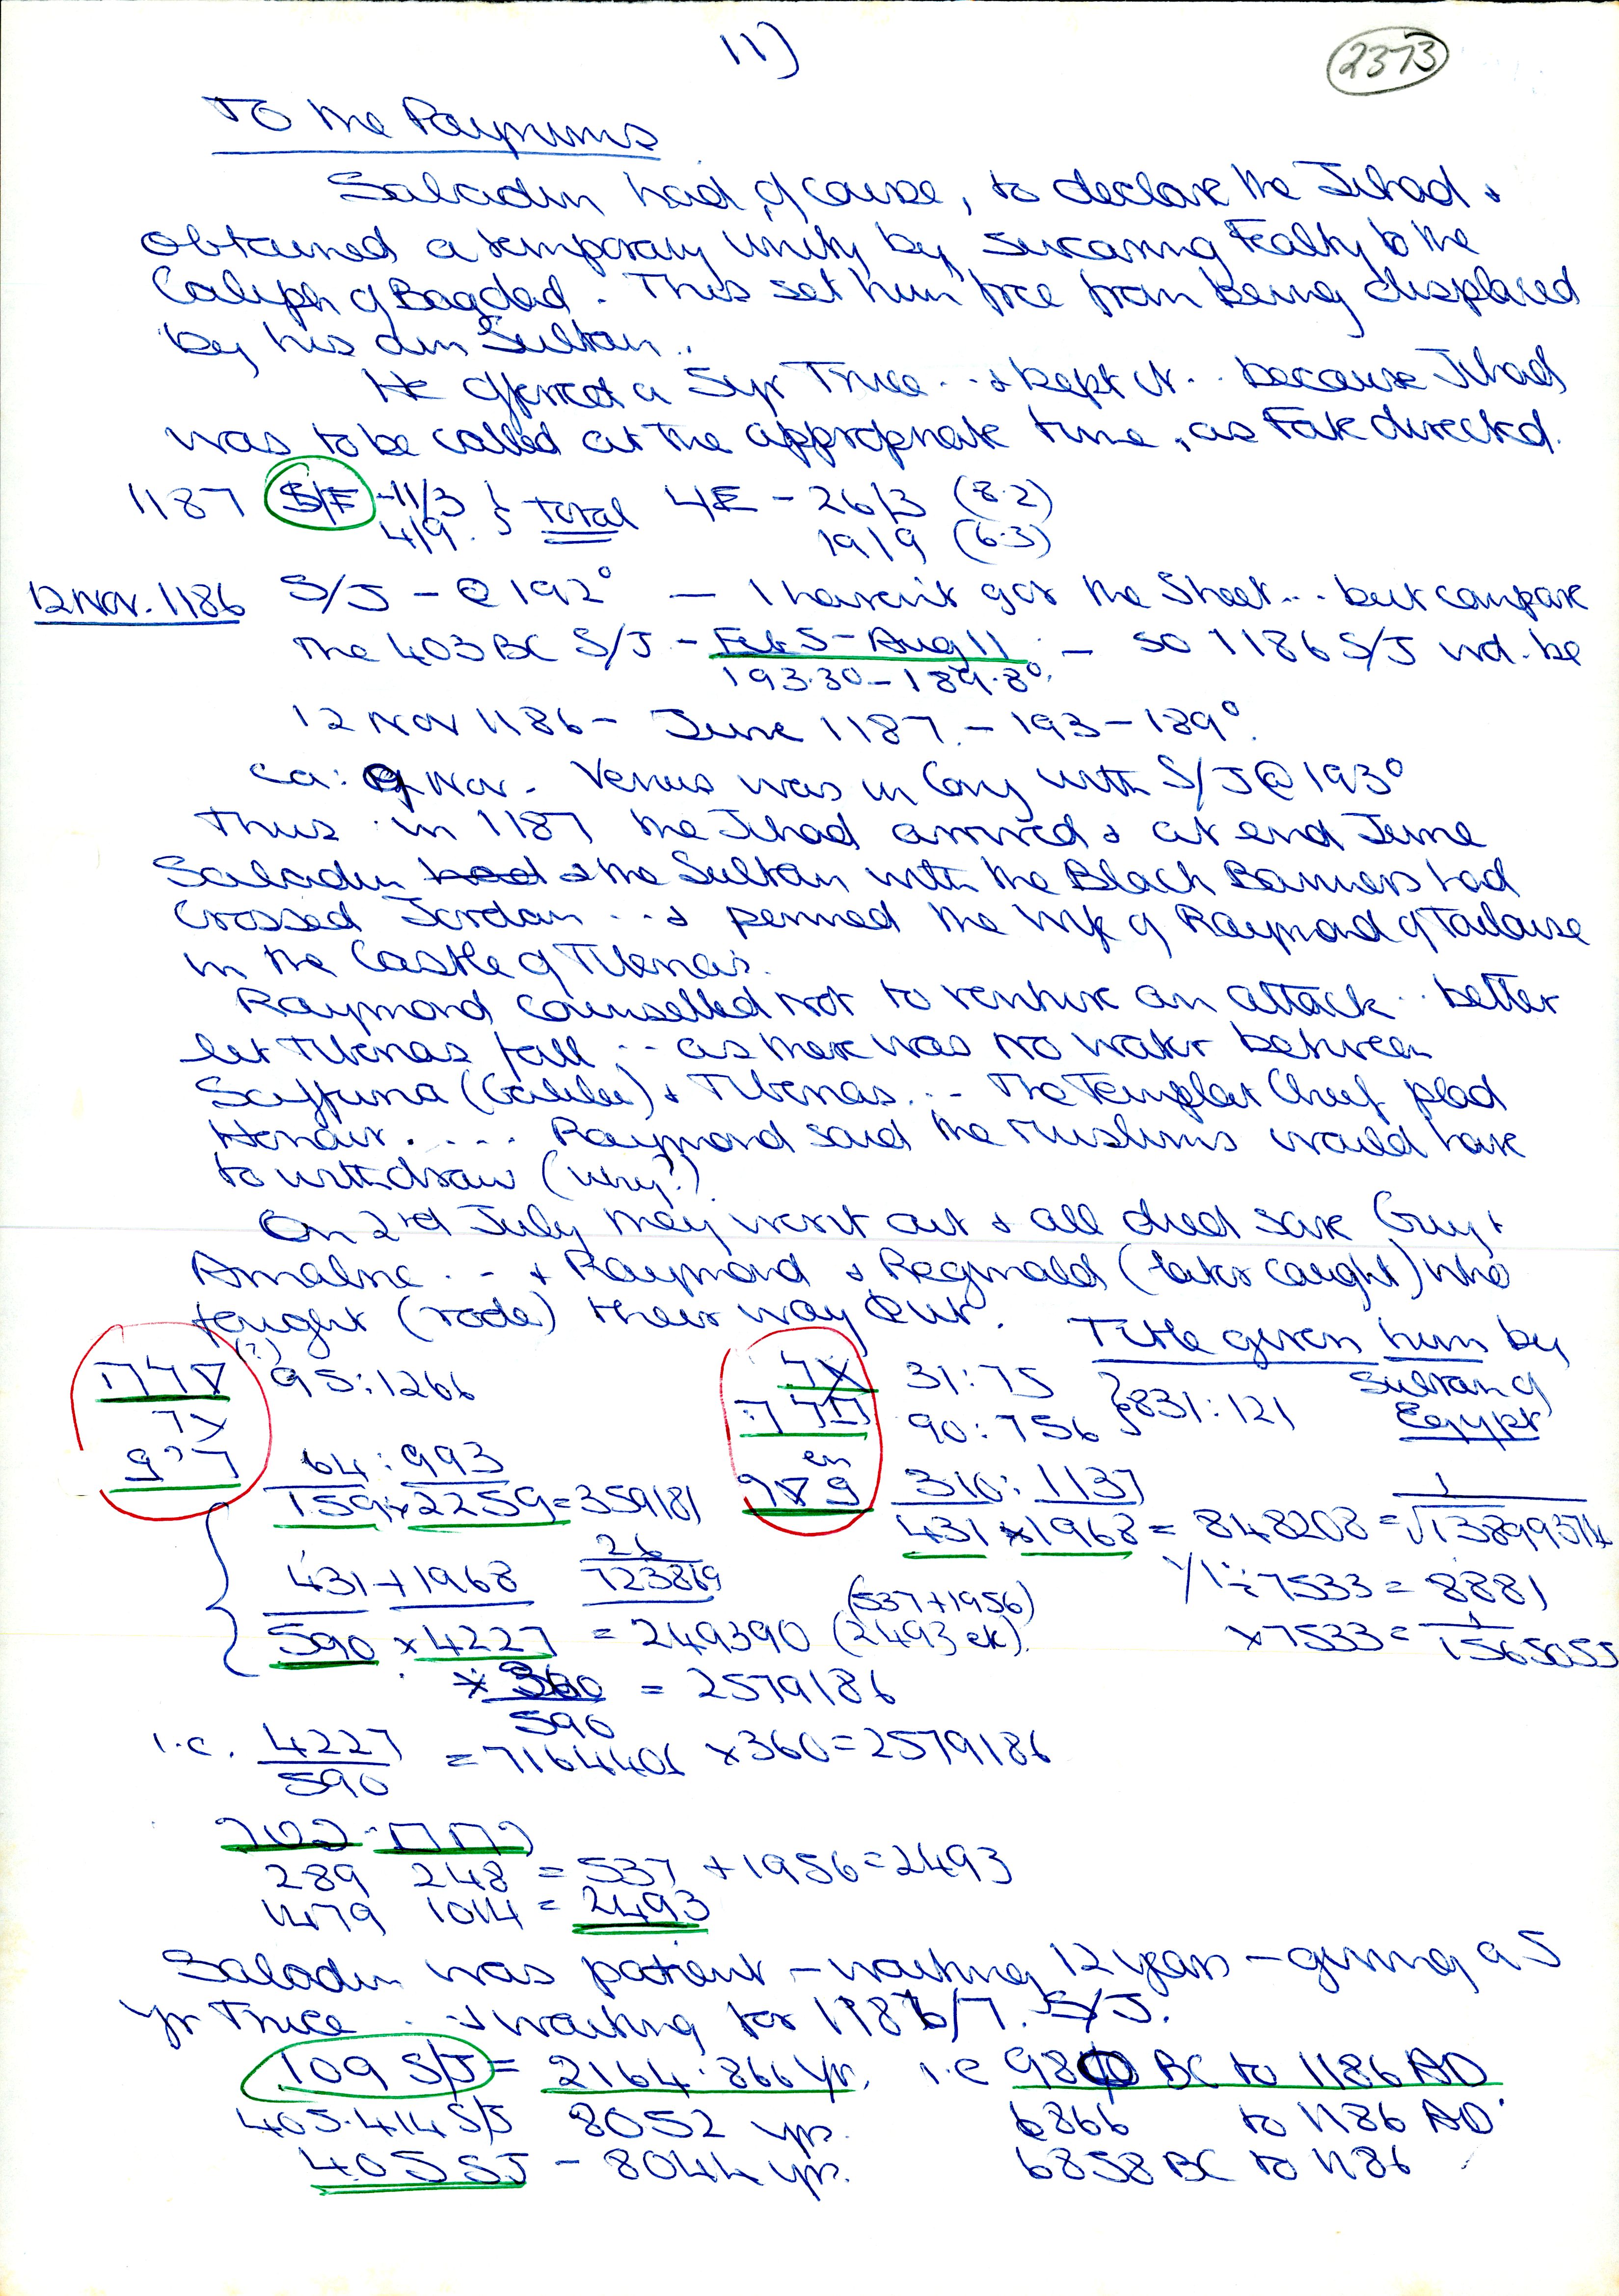 11)
2373
To the Paynims
Saladin had, of cause, to declare the Jihad &
obtained a temporary unity by swearing Fealty to the
Caliph of Bagdad. This set him free from being displaced
by his own Sultan..
He offered a 5yr Truce... & kept it.. because Jihad
was to be called at the appropriate time, as Fate directed.
1187 S/E -11/3 } Total 4E - 26/3 (8.2)
4/9. 19/9 (6.3)
12 Nov. 1186 S/J - @ 192° — I haven't got the Sheet... but compare
the 403 BC S/J - Feb 5 - Aug 11 - so 1186 S/J wd. be
193.30 - 189.8°.
12 Nov 1186 - June 1187. - 193 - 189°.
ca: 9 Nov. Venus was in Conj with S/J @ 193°
Thus in 1187 the Jihad arrived & at end June
Saladin had & the Sultan with the Black Banners had
Crossed Jordan ... & penned the wife of Raymond of Toulouse
in the Castle of Tiberias.
Raymond counselled not to venture an attack.. better
let Tiberias fall ... as there was no water between
Saffuria (Galilee) & Tiberias... The Templar Chief plead
Honour..... Raymond said the Muslims would have
to withdraw (why?).
On 2nd July they went out & all died save Guy &
Amalric... & Raymond & Reginald (later caught) who
fought (rode) their way Out.
Title given him by
Sultan of
Egypt
(?) 95:1266
31:75
90:756 } 831:121
64:993
310:1137
159 x 2259 = 359181
431 x 1968 = 848208 =
431 + 1968
26
723869
÷ 7533 = 8881
590 x 4227 = 249390 (2493 ek).
(537+1956)
x 7533 = 1/1565055
x 360 = 2579186
590
i.e. 4227 = 7164406 x 360 = 2579186
590
289 248 = 537 + 1956 = 2493
1479 1014 = 2493
Saladin was patient - waiting 12 years - giving a 5
yr Truce.. & waiting for 1186/7. S/J.
109 S/J = 2164.866 yr. i.e 980 BC to 1186 AD
405.414 S/J 8052 yrs. 6866 to 1186 AD.
405 SJ - 8044 yrs. 6858 BC to 1186